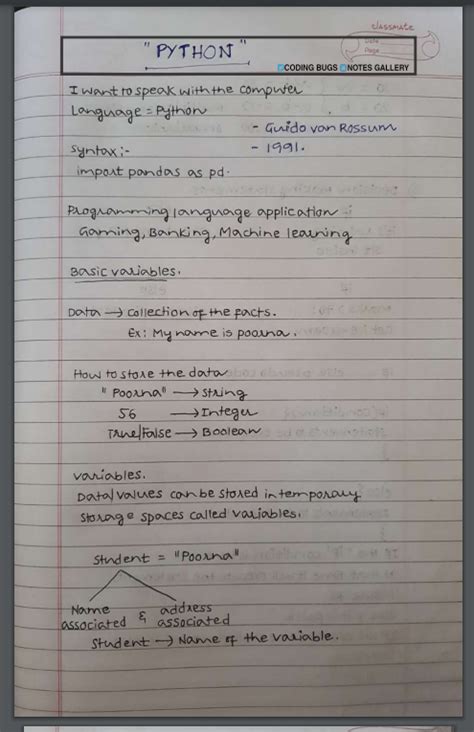 classmate
Date
Page
"PYTHON"
CODING BUGS NOTES GALLERY
I want to speak with the computer
Language = Python
- Guido van Rossum
- 1991.
Syntax ;-
import pandas as pd.
Programming language application
Gaming, Banking, Machine learning
Basic variables.
Data → Collection of the facts.
Ex: My name is poorna.
How to store the data
"Poorna" → String
56 → Integer
True/False → Boolean
variables.
Data/values can be stored in temporary
storage spaces called variables.
Student = "Poorna"
Name associated & address associated
Student → Name of the variable.